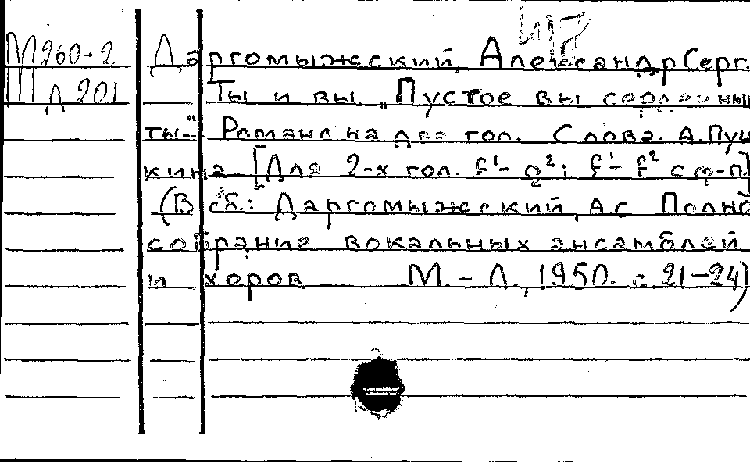 47
М260-2 Даргомыжский, Александр Серг.
Ш Д 201 Ты и вы. „Пустое вы сердечным
ты-" Романс на два гол. Слова. А.Пуш
кина [Для 2-х гол. f¹- g²; f¹- f² с ф-п]
(В сб.: Даргомыжский, А.С Полное
собрание вокальных ансамблей
и хоров М. - Л., 1950. с. 21-24)